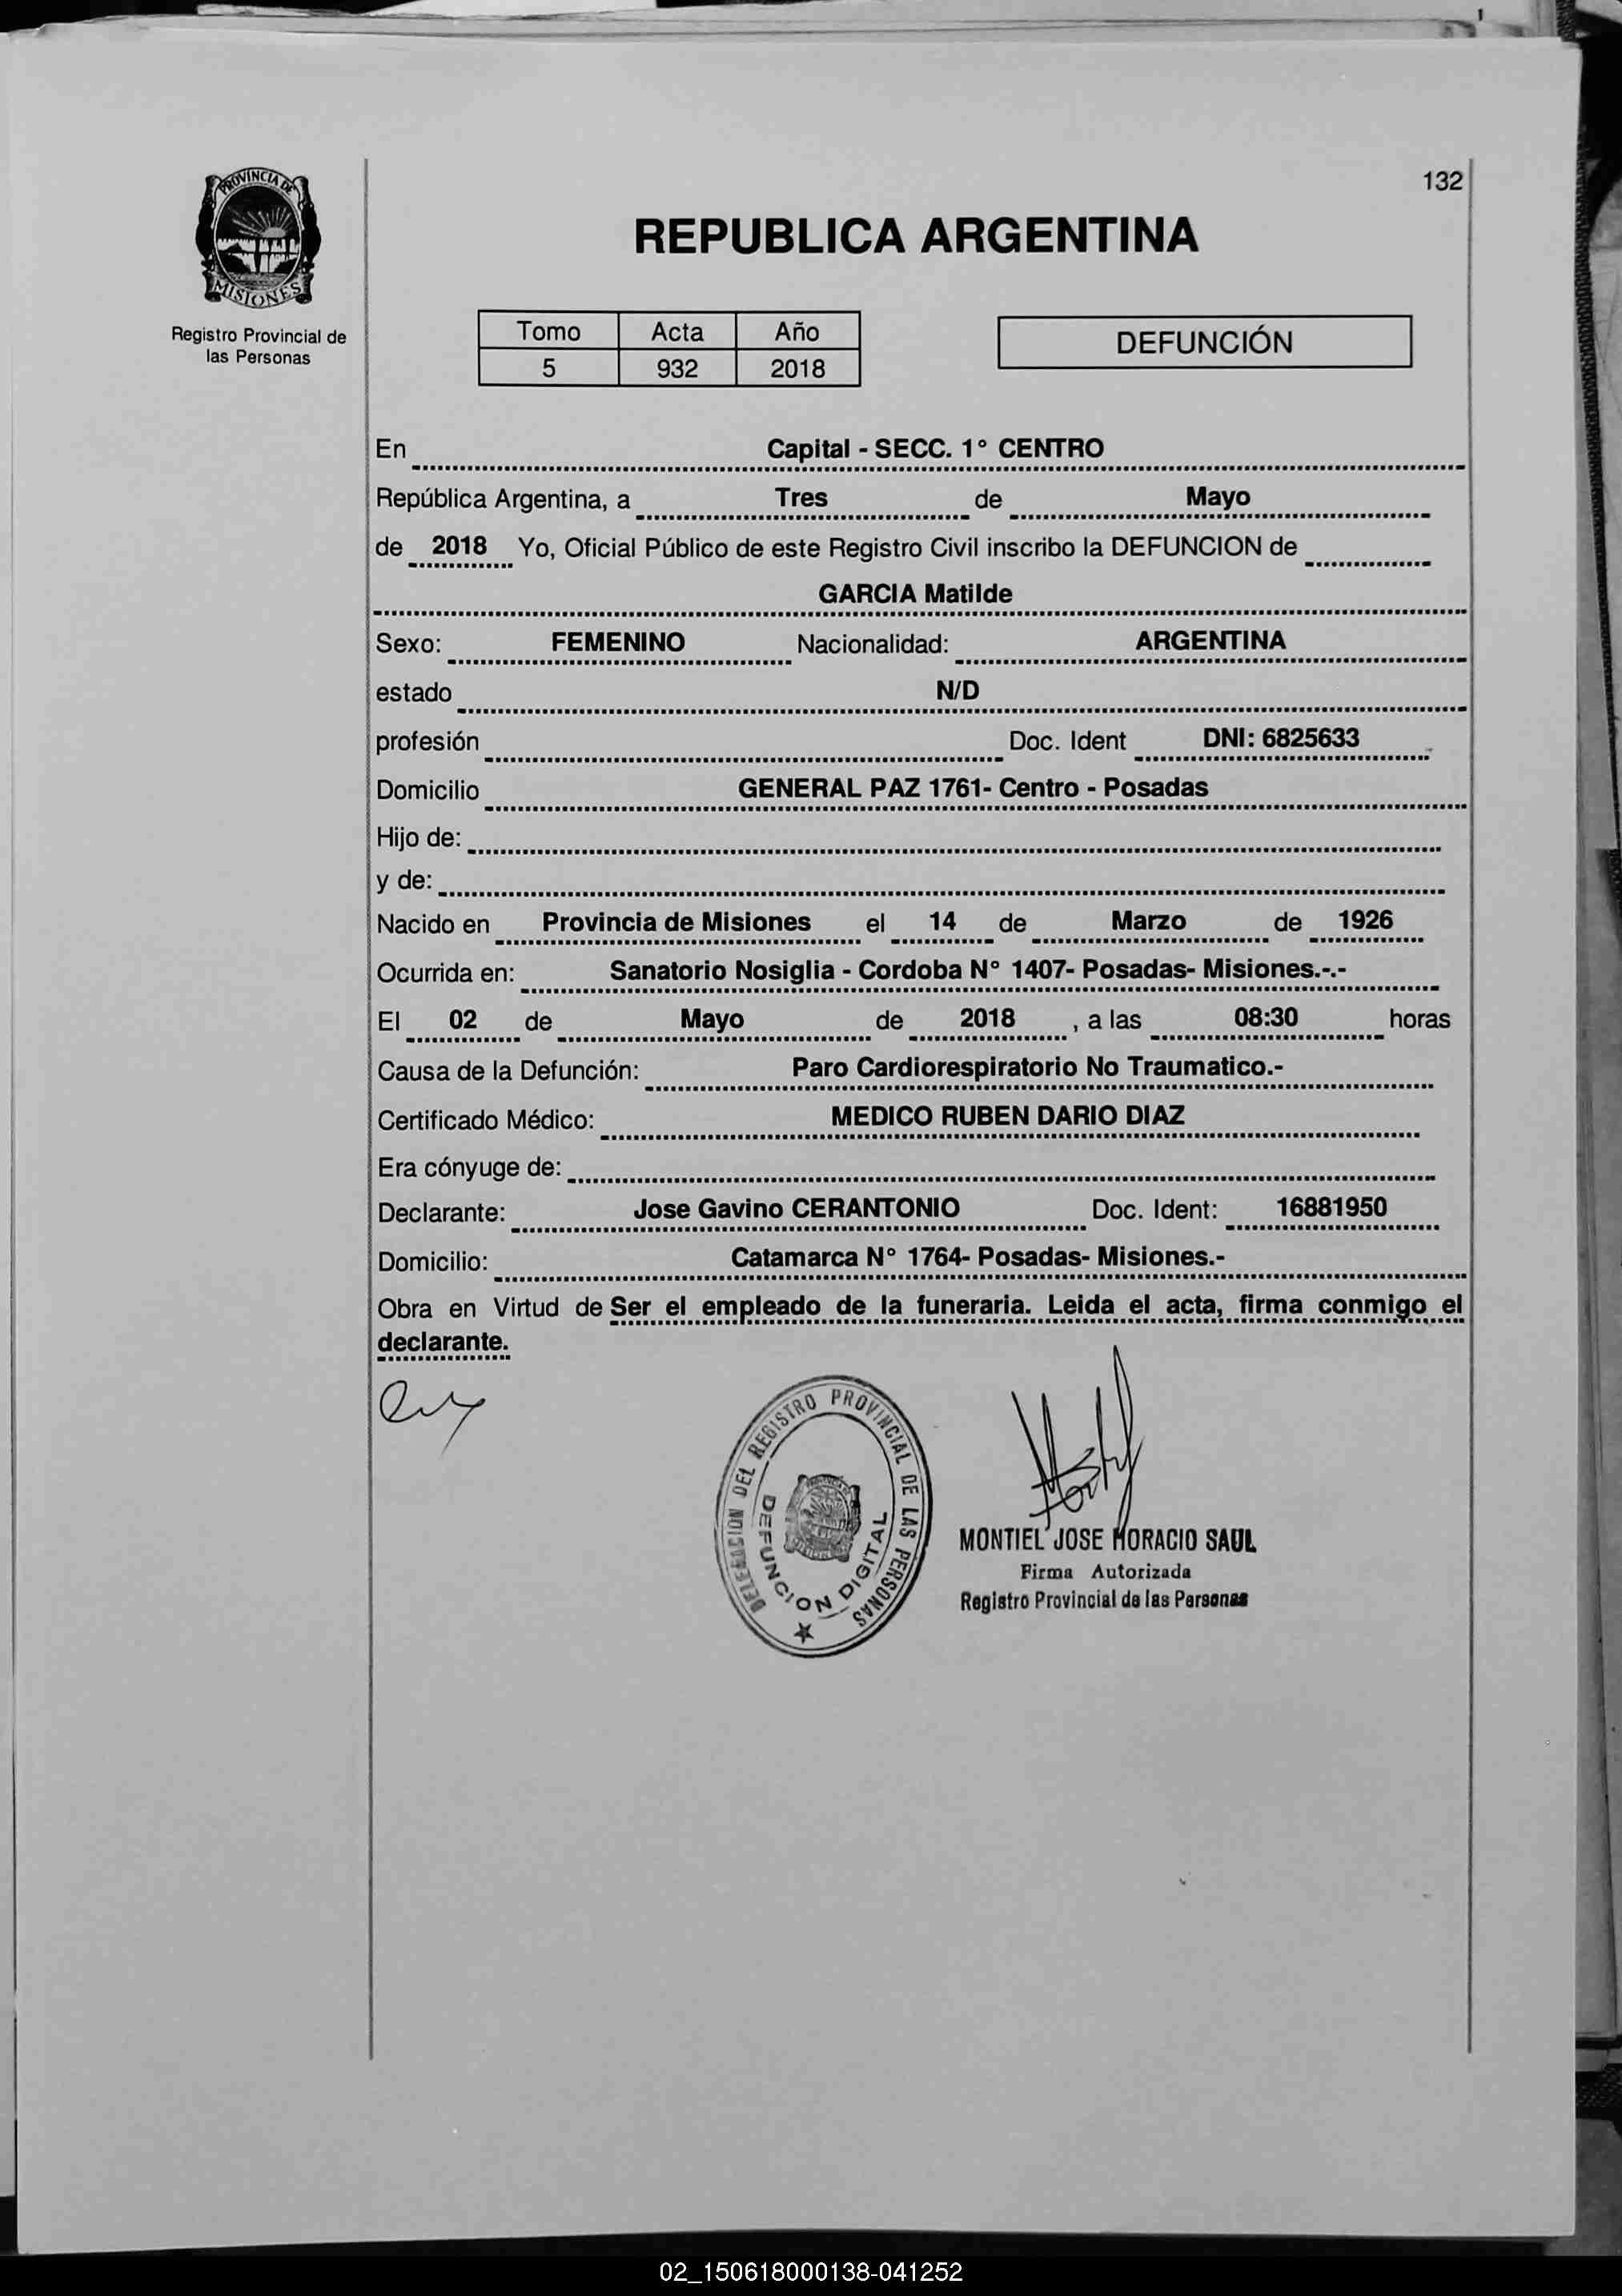 132
PROVINCIA DE
MISIONES
Registro Provincial de
las Personas
REPUBLICA ARGENTINA
Tomo Acta Año
5 932 2018
DEFUNCIÓN
En Capital - SECC. 1° CENTRO
República Argentina, a Tres de Mayo
de 2018 Yo, Oficial Público de este Registro Civil inscribo la DEFUNCION de
GARCIA Matilde
Sexo: FEMENINO Nacionalidad: ARGENTINA
estado N/D
profesión Doc. Ident DNI: 6825633
Domicilio GENERAL PAZ 1761- Centro - Posadas
Hijo de:
y de:
Nacido en Provincia de Misiones el 14 de Marzo de 1926
Ocurrida en: Sanatorio Nosiglia - Cordoba N° 1407- Posadas- Misiones.-.-
El 02 de Mayo de 2018 , a las 08:30 horas
Causa de la Defunción: Paro Cardiorespiratorio No Traumatico.-
Certificado Médico: MEDICO RUBEN DARIO DIAZ
Era cónyuge de:
Declarante: Jose Gavino CERANTONIO Doc. Ident: 16881950
Domicilio: Catamarca N° 1764- Posadas- Misiones.-
Obra en Virtud de Ser el empleado de la funeraria. Leida el acta, firma conmigo el
declarante.
DELEGACION DEL REGISTRO PROVINCIAL DE LAS PERSONAS
DEFUNCION DIGITAL
MONTIEL JOSE HORACIO SAUL
Firma Autorizada
Registro Provincial de las Personas
02_150618000138-041252